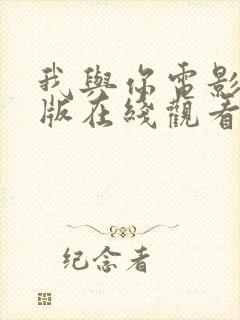 我與你電影
版在綫觀看
纪念者